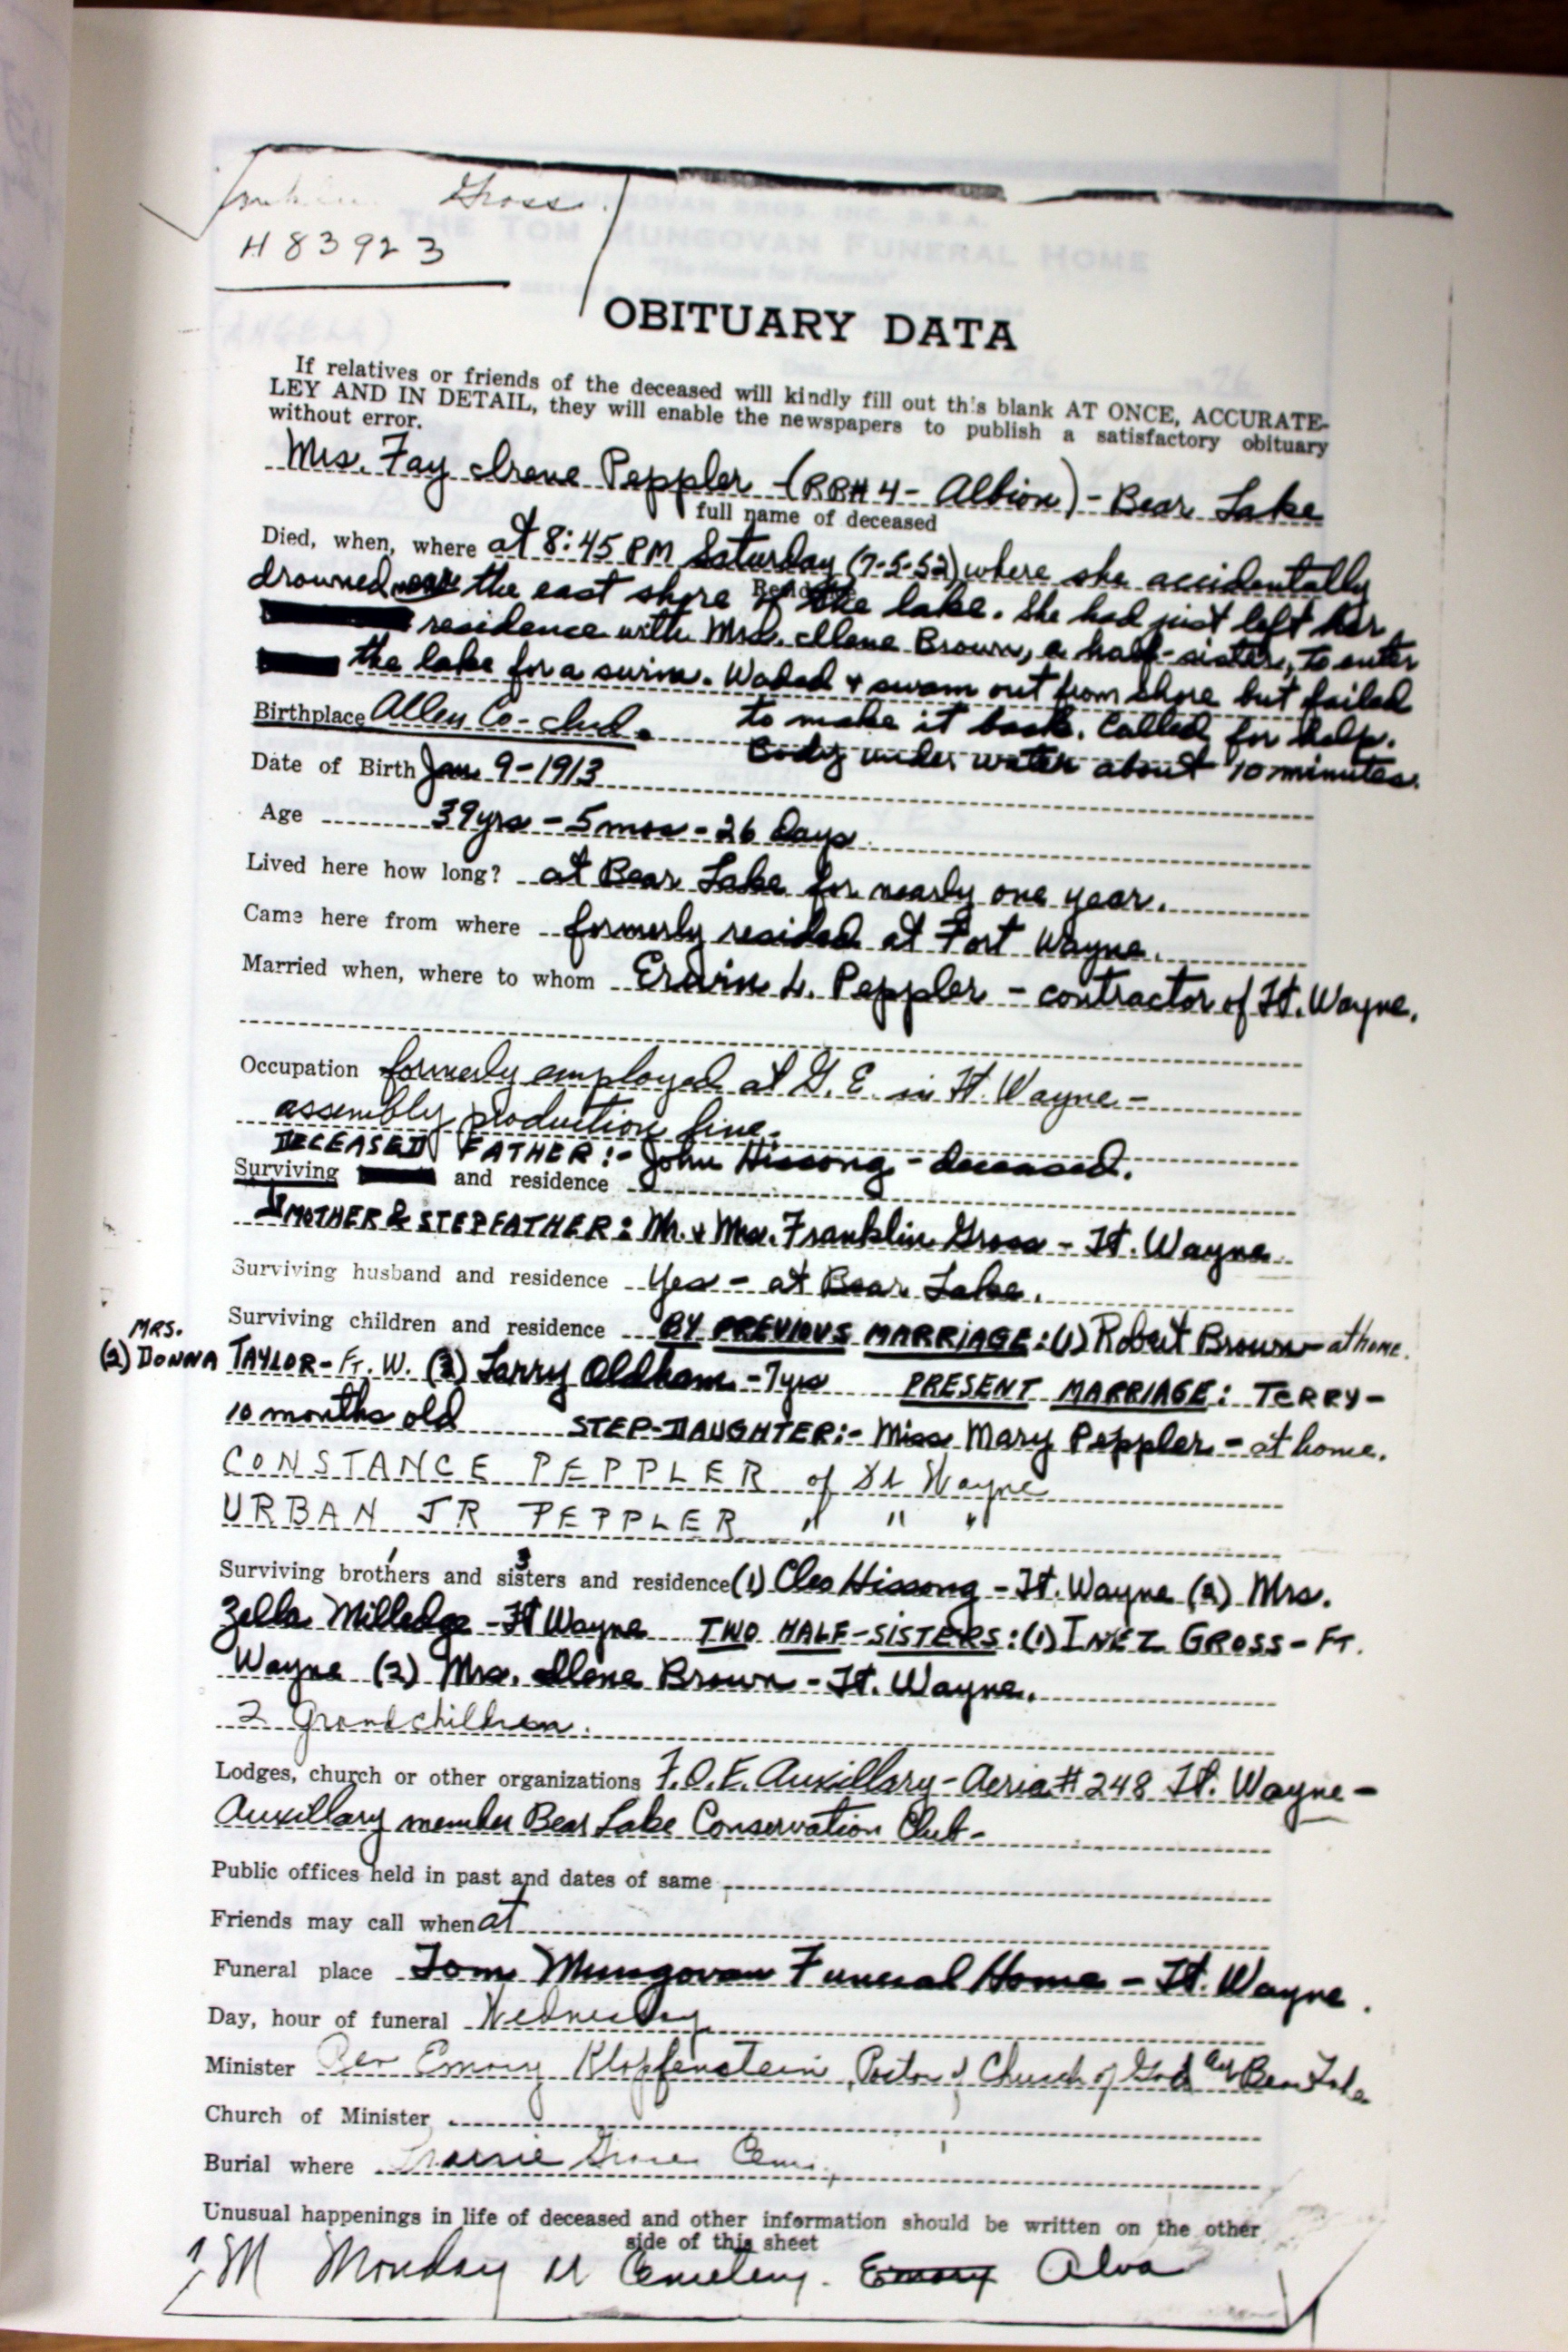 Gross
H 83923
OBITUARY DATA
If relatives or friends of the deceased will kindly fill out this blank AT ONCE, ACCURATE-
LEY AND IN DETAIL, they will enable the newspapers to publish a satisfactory obituary
without error.
Mrs. Fay Irene Peppler - (RR#4 - Albion) - Bear Lake
full name of deceased
Died, when, where at 8:45 PM Saturday (7-5-52) where she accidentally
drowned near the east shore of the lake. She had just left her
residence with Mrs. Ilene Brown, a half-sister, to enter
the lake for a swim. Waded & swam out from shore but failed
Birthplace Allen Co - Ind. to make it back. Called for help.
Body under water about 10 minutes.
Date of Birth Jan 9 - 1913
Age 39 yrs - 5 mos - 26 Days
Lived here how long? at Bear Lake for nearly one year.
Came here from where formerly resided at Fort Wayne.
Married when, where to whom Erwin L. Peppler - contractor of Ft. Wayne.
Occupation formerly employed at G.E. in Ft. Wayne -
assembly production line.
DECEASED FATHER:- John Hissong - deceased.
Surviving and residence
MOTHER & STEPFATHER: Mr. & Mrs. Franklin Gross - Ft. Wayne
Surviving husband and residence Yes - at Bear Lake.
Surviving children and residence BY PREVIOUS MARRIAGE: (1) Robert Brown - at home.
(2) MRS. DONNA TAYLOR - FT. W. (3) Larry Oldham - 7 yrs PRESENT MARRIAGE: TERRY -
10 months old STEP-DAUGHTER:- Miss Mary Peppler - at home.
CONSTANCE PEPPLER of Ft Wayne
URBAN JR PEPPLER " " "
Surviving brothers and 3 sisters and residence (1) Cleo Hissong - Ft. Wayne (2) Mrs.
Zella Milledge - Ft Wayne TWO HALF-SISTERS: (1) INEZ GROSS - FT.
Wayne (2) Mrs. Ilene Brown - Ft. Wayne.
2 Grandchildren.
Lodges, church or other organizations F.O.E. Auxillary - Aeria # 248 Ft. Wayne -
Auxillary member Bear Lake Conservation Club -
Public offices held in past and dates of same
Friends may call when at
Funeral place Tom Mungovan Funeral Home - Ft. Wayne.
Day, hour of funeral Wednesday
Minister Rev Emory Klopfenstein, Pastor of Church of God at Bear Lake
Church of Minister
Burial where Prairie Grove Cem.
Unusual happenings in life of deceased and other information should be written on the other
side of this sheet
Monday Cemetery. Emory Alva